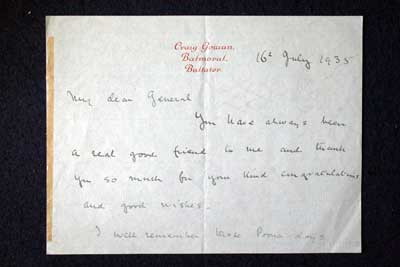 Craig Gowan,
Balmoral,
Ballater.
16th July 1935
My dear General
You have always been
a real good friend to me and thank
you so much for your kind congratulations
and good wishes.
I well remember those Poona days